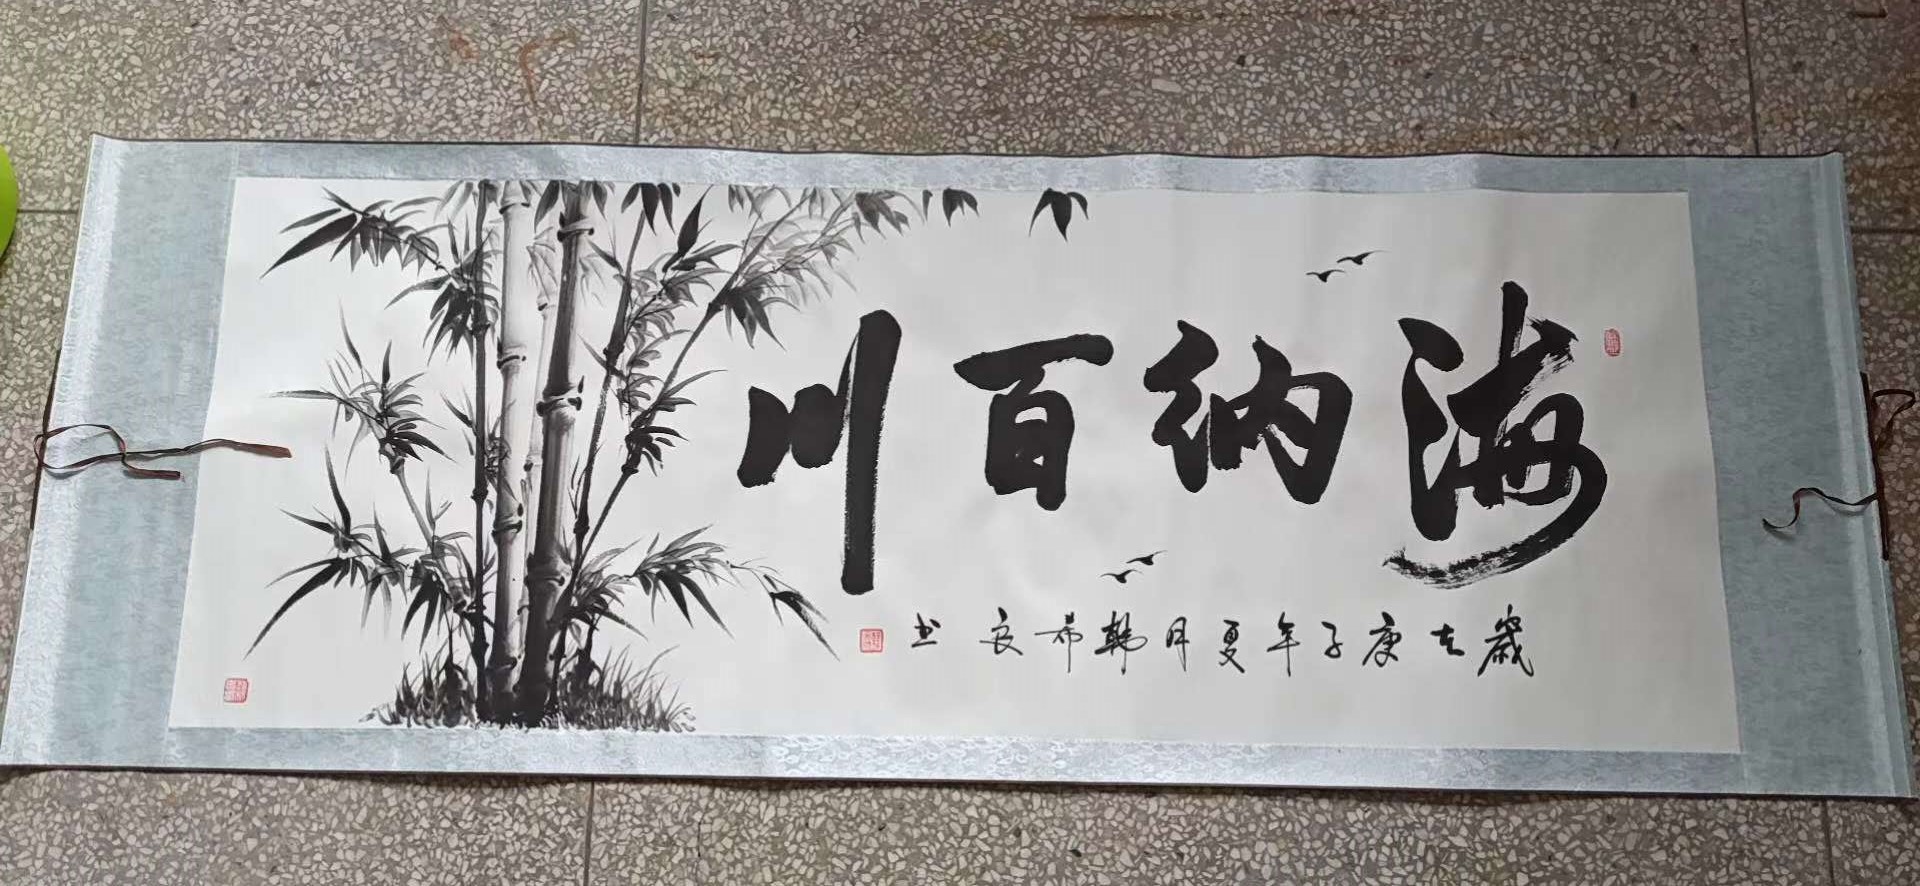 海纳百川
歲在庚子年夏月韩希良书